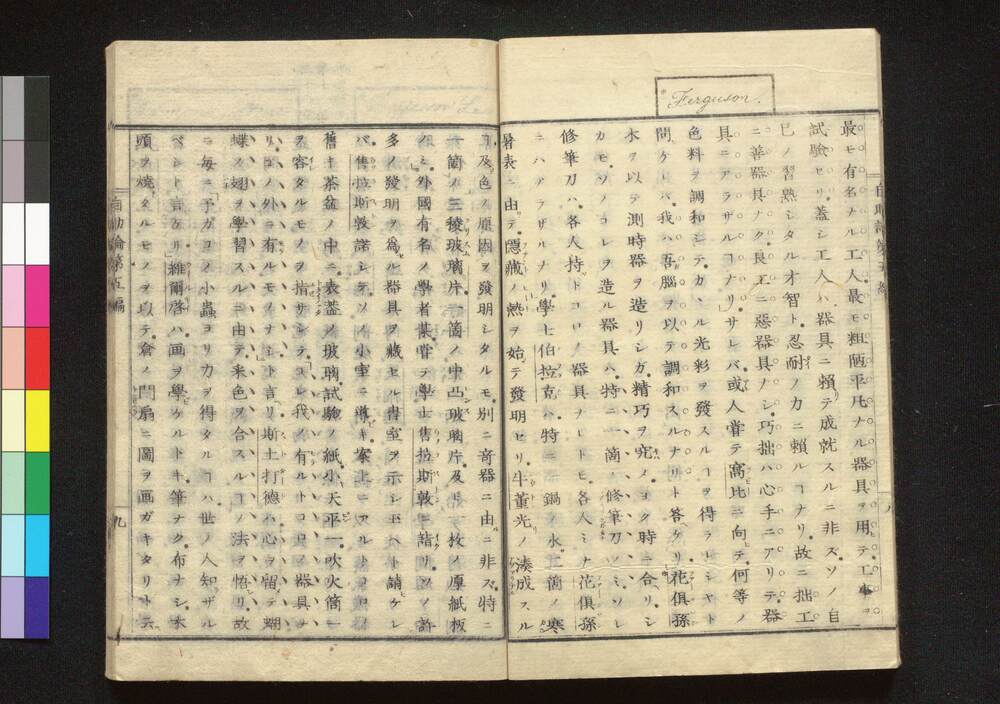 Ferguson.
最モ有名ナル工人。最モ粗陋平凡ナル器具ヲ用テ工事ヲ
試驗セリ。蓋シ工人ハ器具ニ賴テ成就スルニ非ズ。ソノ自
己ノ習熟シタル才智ト。忍耐ノ力ニ賴ルヿナリ。故ニ拙工
ニ善器具ナク。良工ニ惡器具ナシ。巧拙ハ心手ニアリテ器
具ニアラザルヿナリ。サレバ或人嘗テ窩比ニ向テ何等ノ
色料ヲ調和シテ。カヽル光彩ヲ發スルヿヲ得ラレシヤト
問ケレバ。我ハ吾腦ヲ以テ調和スルナリト答ケリ。花俱孫
木ヲ以テ測時器ヲ造リシガ。精巧ヲ究メ。ヨク時ニ合リ。シ
カモソノコレヲ造ル器具ハ。特ニ一箇ノ修筆刀ノミ。ソレ
修筆刀ハ。各人持トコロノ器具ナレトモ。各人ミナ花俱孫
ニハアラザルナリ。學士伯拉克ハ。特ニ二鍋ノ水。二箇ノ寒
暑表ニ由テ。隱藏ノ熱ヲ始テ發明セリ。牛董光ノ湊成スル
及色ノ原因ヲ發明シタルモ。別ニ奇器ニ由ルニ非ズ。特ニ
一箇ノ三稜玻璃片。一箇ノ中凸玻璃片。及ビ一枚ノ厚紙板
ノミ。外國有名ノ學者某。嘗テ學士售拉斯敦ニ詣リ。ソノ許
多ノ發明ヲ爲セル器具ヲ藏セル書室ヲ示シ玉ヘト請ケレ
バ。售拉斯敦諾シテ。ソノ小室ニ導キ。案上ニアルトコロノ
舊キ茶盆ノ中ニ。表蓋ノ玻璃。試驗ノ紙。小天平一。吹火筒一
ヲ容タルモノヲ指サシテ。コレ我ノ有ルトコロノ器具ナ
リ。コノ外ニ有ルモノナシト言リ。斯土打德ハ。心ヲ留テ蝴
蝶ノ翅ヲ學習スルニ由テ。采色ヲ合スルヿノ法ヲ悟リ。故
ニ毎ニ予ガコノ小蟲ヨリ力ヲ得タルヿハ。世ノ人知ザル
ベシト言ケリ。維爾啓ハ画ヲ學ケルトキ。筆ナク布ナシ。木
頭ヲ燒タルモノヲ以テ。倉ノ門扇ニ圖ヲ画ガキタリト云
自助論第五編
九